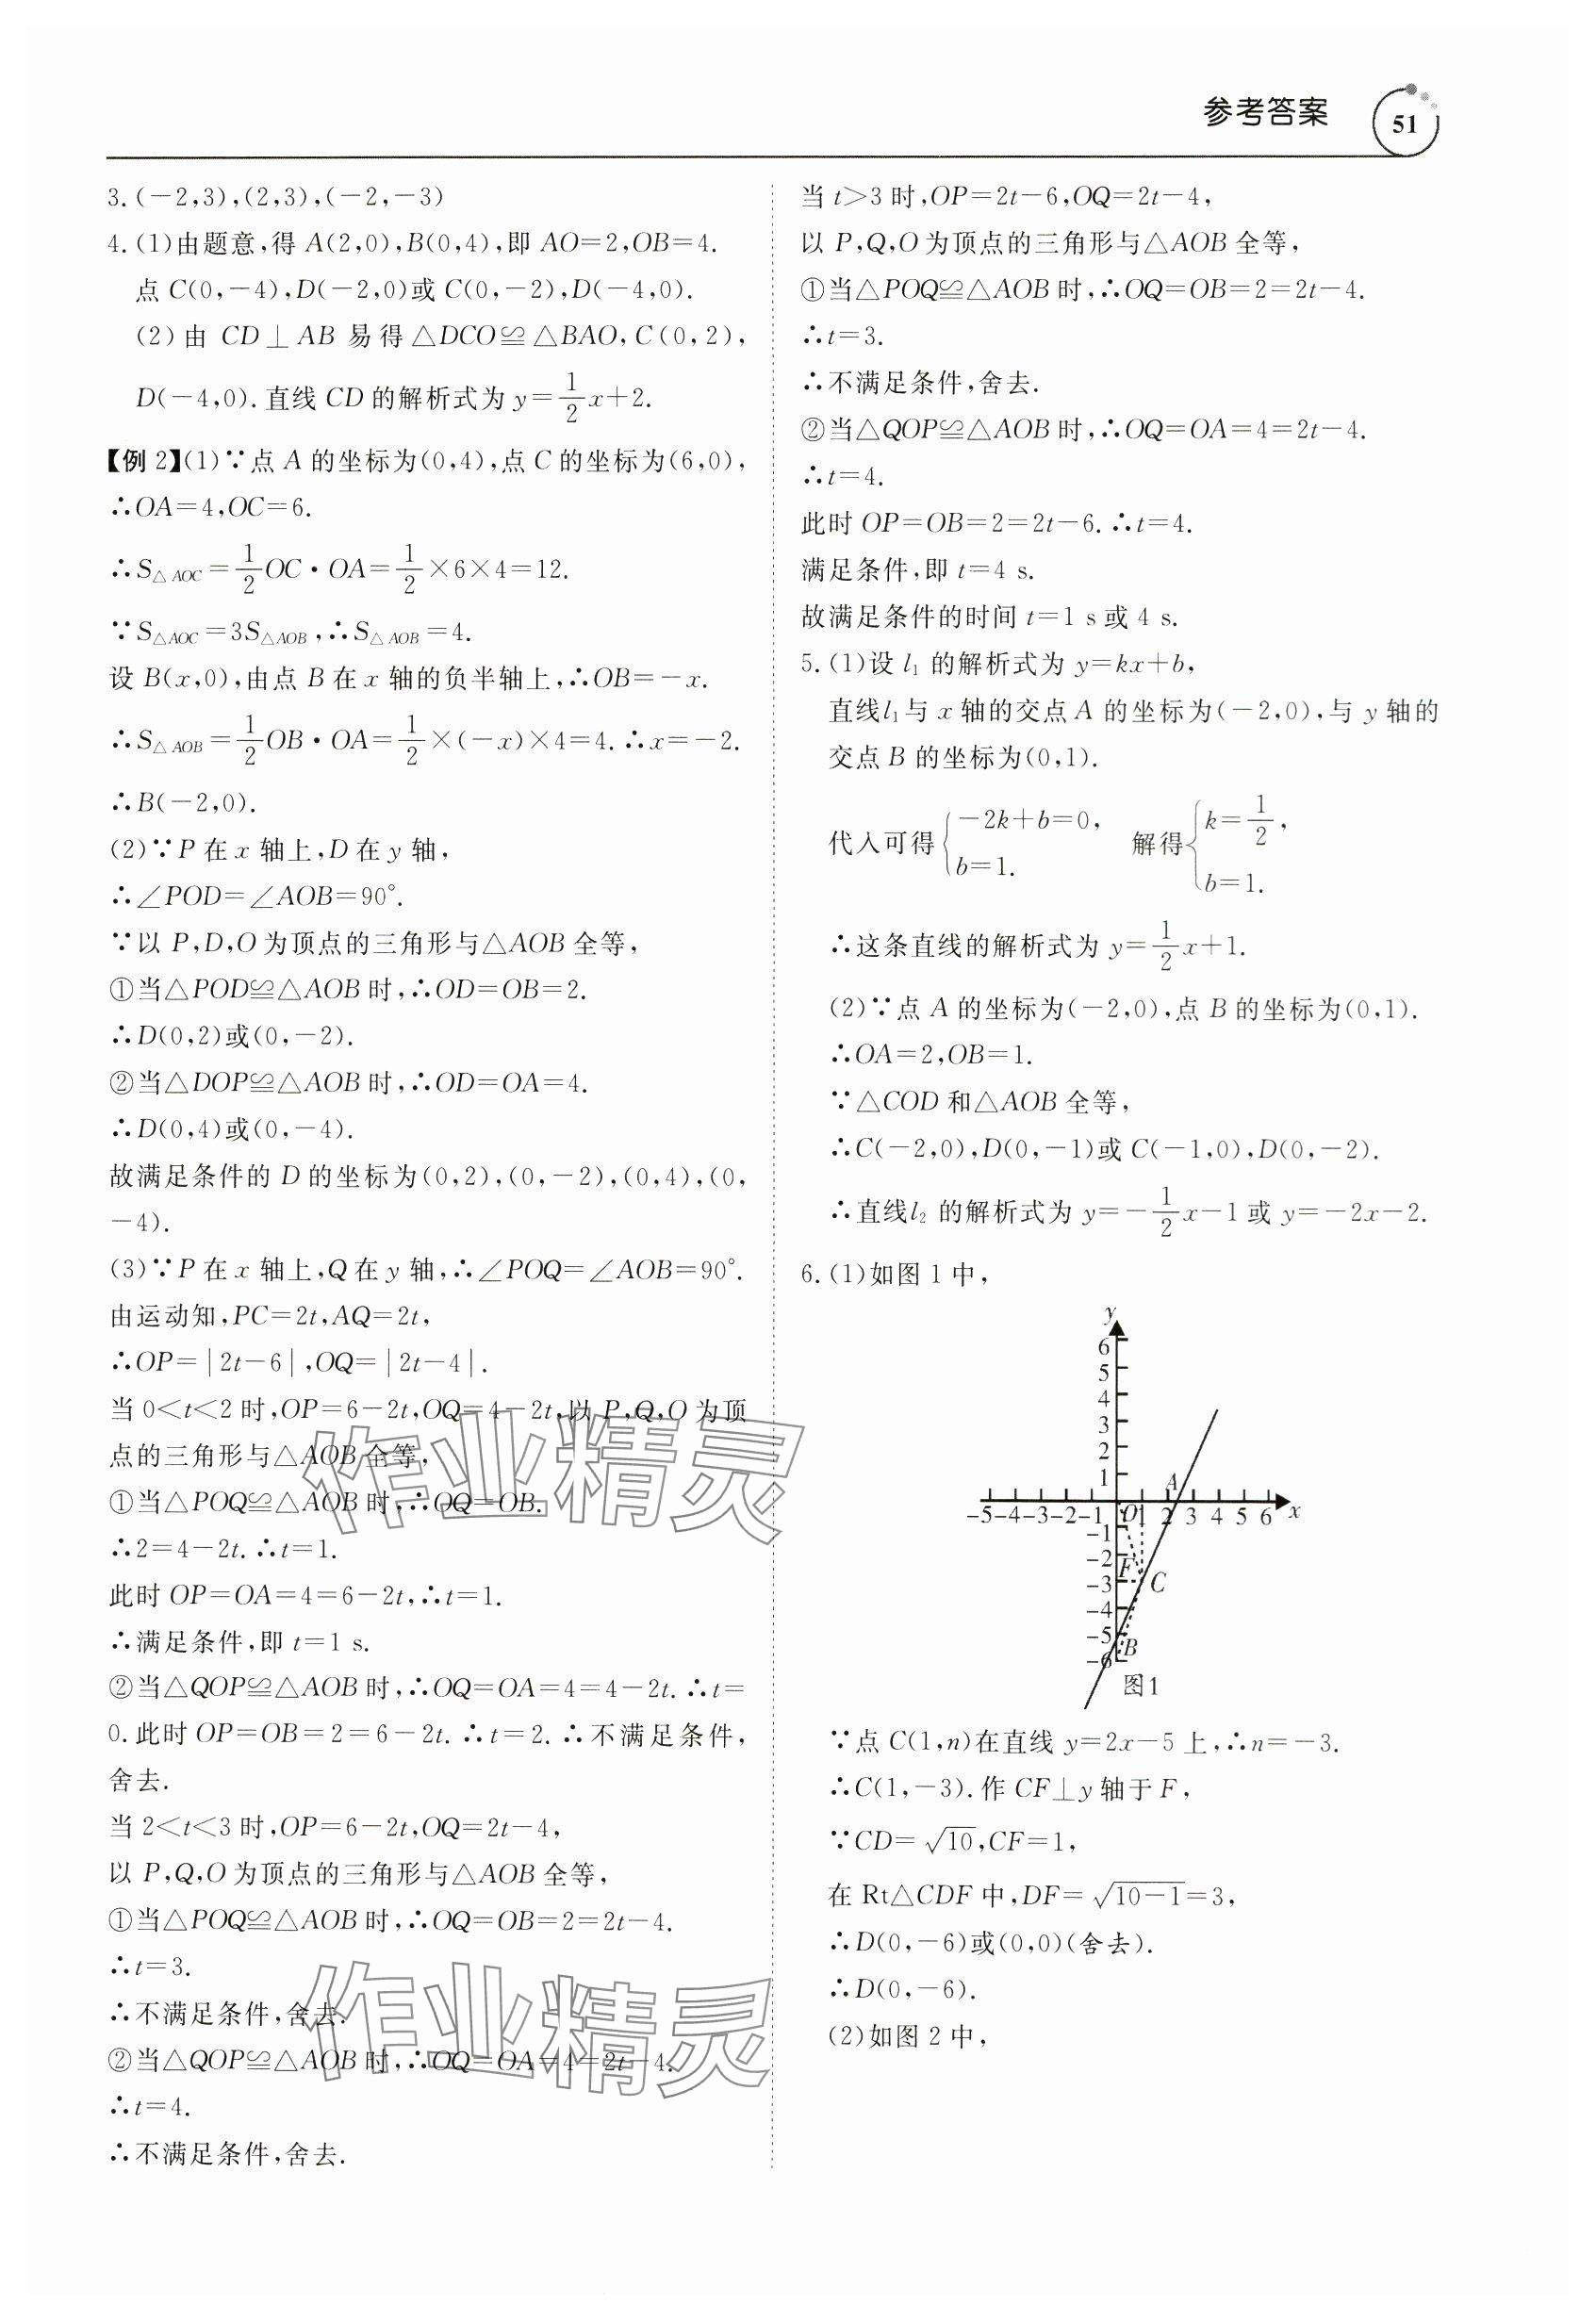 参考答案 51
3.(-2,3),(2,3),(-2,-3)
4.(1)由题意,得 A(2,0),B(0,4),即 AO=2,OB=4.
点 C(0,-4),D(-2,0)或 C(0,-2),D(-4,0).
(2)由 CD⊥AB 易得△DCO≌△BAO,C(0,2),
D(-4,0).直线 CD 的解析式为 y=1/2x+2.
【例 2】(1)∵点 A 的坐标为(0,4),点 C 的坐标为(6,0),
∴OA=4,OC=6.
∴S△AOC=1/2OC·OA=1/2×6×4=12.
∵S△AOC=3S△AOB,∴S△AOB=4.
设 B(x,0),由点 B 在 x 轴的负半轴上,∴OB=-x.
∴S△AOB=1/2OB·OA=1/2×(-x)×4=4.∴x=-2.
∴B(-2,0).
(2)∵P 在 x 轴上,D 在 y 轴,
∴∠POD=∠AOB=90°.
∵以 P,D,O 为顶点的三角形与△AOB 全等,
①当△POD≌△AOB 时,∴OD=OB=2.
∴D(0,2)或(0,-2).
②当△DOP≌△AOB 时,∴OD=OA=4.
∴D(0,4)或(0,-4).
故满足条件的 D 的坐标为(0,2),(0,-2),(0,4),(0,
-4).
(3)∵P 在 x 轴上,Q 在 y 轴,∴∠POQ=∠AOB=90°.
由运动知,PC=2t,AQ=2t,
∴OP=|2t-6|,OQ=|2t-4|.
当 0<t<2 时,OP=6-2t,OQ=4-2t,以 P,Q,O 为顶
点的三角形与△AOB 全等,
①当△POQ≌△AOB 时,∴OQ=OB.
∴2=4-2t.∴t=1.
此时 OP=OA=4=6-2t,∴t=1.
∴满足条件,即 t=1 s.
②当△QOP≌△AOB 时,∴OQ=OA=4=4-2t.∴t=
0.此时 OP=OB=2=6-2t.∴t=2.∴不满足条件,
舍去.
当 2<t<3 时,OP=6-2t,OQ=2t-4,
以 P,Q,O 为顶点的三角形与△AOB 全等,
①当△POQ≌△AOB 时,∴OQ=OB=2=2t-4.
∴t=3.
∴不满足条件,舍去.
②当△QOP≌△AOB 时,∴OQ=OA=4=2t-4.
∴t=4.
∴不满足条件,舍去.
当 t>3 时,OP=2t-6,OQ=2t-4,
以 P,Q,O 为顶点的三角形与△AOB 全等,
①当△POQ≌△AOB 时,∴OQ=OB=2=2t-4.
∴t=3.
∴不满足条件,舍去.
②当△QOP≌△AOB 时,∴OQ=OA=4=2t-4.
∴t=4.
此时 OP=OB=2=2t-6.∴t=4.
满足条件,即 t=4 s.
故满足条件的时间 t=1 s 或 4 s.
5.(1)设 l₁ 的解析式为 y=kx+b,
直线l₁与 x 轴的交点 A 的坐标为(-2,0),与 y 轴的
交点 B 的坐标为(0,1).
代入可得{-2k+b=0, b=1. 解得{k=1/2, b=1.
∴这条直线的解析式为 y=1/2x+1.
(2)∵点 A 的坐标为(-2,0),点 B 的坐标为(0,1).
∴OA=2,OB=1.
∵△COD 和△AOB 全等,
∴C(-2,0),D(0,-1)或 C(-1,0),D(0,-2).
∴直线l₂ 的解析式为 y=-1/2x-1 或 y=-2x-2.
6.(1)如图 1 中,
y
6
5
4
3
2
1 A
-5-4-3-2-1 O1 2 3 4 5 6 x
-1
-2 F
-3 C
-4
-5 B
-6
图1
∵点 C(1,n)在直线 y=2x-5 上,∴n=-3.
∴C(1,-3).作 CF⊥y 轴于 F,
∵CD=√10,CF=1,
在 Rt△CDF 中,DF=√10-1=3,
∴D(0,-6)或(0,0)(舍去).
∴D(0,-6).
(2)如图 2 中,
作业精灵
作业精灵